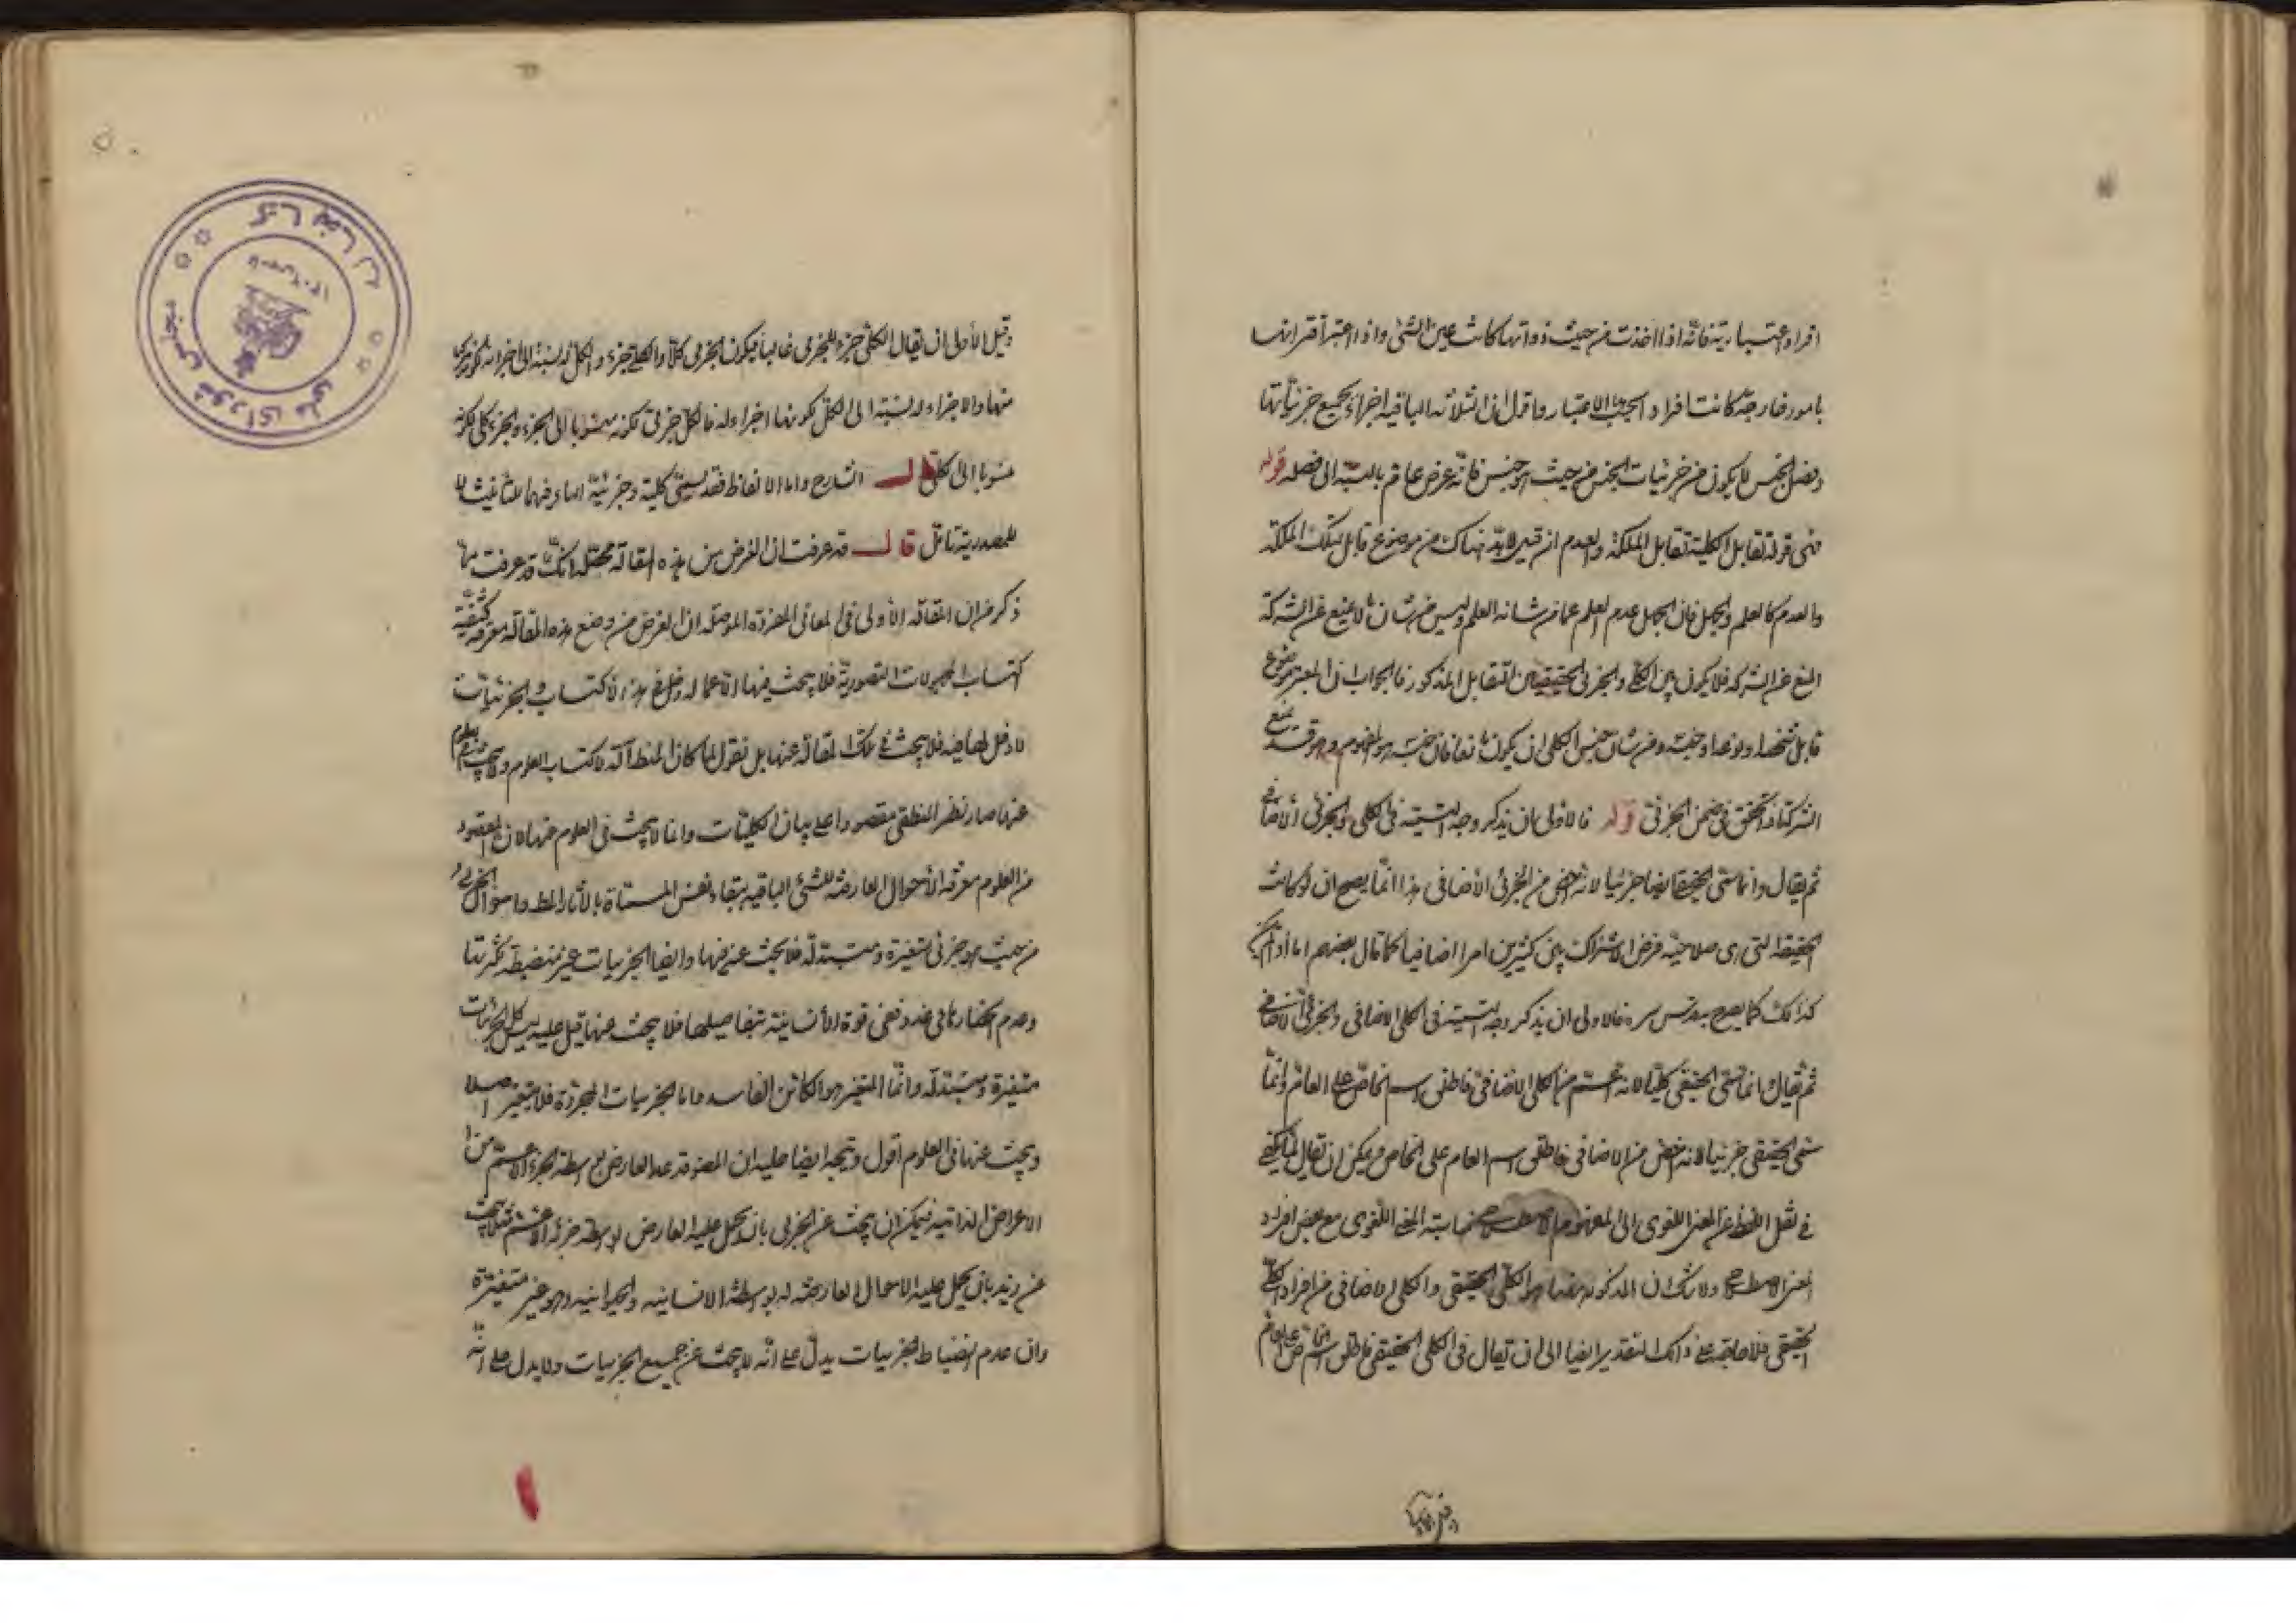 افراد اعتبارية فانه اذا اخذت من حيث ذواتها كانت عين الشئ واذا اعتبر اقترانها
بامور خارجة كانت افراد الاعتبار واقول ان الثلاثة الباقية اجزاء لجميع جزئياتها
وفصل الجنس لا يكون من جزئيات الجنس من حيث هو جنس فانه عرض عام بالنسبة الى فصله قوله
فتقابل الكلية تقابل الملكة والعدم ان قيل لابد هناك من موضوع قابل لتلك الملكة
والعدم كالعلم والجهل فان الجهل عدم العلم عما من شانه العلم وليس من شان ما لا يمنع عن الشركة
المنع عن الشركة فلا يكون بين الكلي والجزئي الحقيقيين التقابل المذكور فالجواب ان المعتبر موضوع
قابل شخصا او نوعا او جنسا ومن شان جنس الكلي ان يكون مانعا فان جنسه هو المفهوم وهو قد يمنع
الشركة اذ تحقق في ضمن الجزئي قوله فالاولى ان يذكر وجه التسمية في الكلي والجزئي الاضافي
ثم يقال وانما سمي الحقيقي ايضا جزئيا لانه اخص من الجزئي الاضافي هذا انما يصح ان لو كانت
الحقيقة التي هي صلاحية فرض الاشتراك بين كثيرين امرا اضافيا كما قال بعضهم اما اذا لم يكن
كذلك كما يصرح به قدس سره فالاولى ان يذكر وجه التسمية في الكلي الاضافي والجزئي الاضافي
ثم يقال انما سمي الحقيقي كليا لانه اعم من الكلي الاضافي فاطلق اسم الخاص على العام وانما
سمي الحقيقي جزئيا لانه اخص من الاضافي فاطلق اسم العام على الخاص ويمكن ان يقال انما يكفي
في نقل اللفظ عن المعنى اللغوي الى المعنى الاصطلاحي مناسبة المعنى اللغوي مع بعض افراد
المعنى الاصطلاحي ولا شك ان المذكور الكلي الحقيقي والكلي الاضافي من افراد الكلي
الحقيقي فلا حاجة على ذلك التقدير ايضا الى ان يقال في الكلي الحقيقي فاطلق اسم الخاص على العام
وقيل الاولى ان يقال الكلي جزء للجزئي غالبا فيكون الجزئي كلا والكلي جزء والكل له نسبة الى اجزائه لكونه مركبا
منها والاجزاء له نسبة الى الكل لكونها اجزاء له فالكل جزئي لكونه منسوبا الى الجزء والجزء كلي لكونه
منسوبا الى كل قال الشارح واما الالفاظ فقد تسمى كلية وجزئية التاء فيهما للتانيث لا
للمصدرية تامل قال قد عرفت ان الغرض من هذه المقالة محتمل انك قد عرفت مما
ذكر من ان المقالة الاولى في المعاني المفردة الموصلة ان الغرض من وضع هذه المقالة معرفة كيفية
اكتساب المجهولات التصورية فلا يبحث فيها الا عما له دخل في هذا الاكتساب والجزئيات
لا دخل لها فيه فلا يبحث في تلك المقالة عنها بل نقول لما كان المنطق آلة لاكتساب العلوم ولا يبحث في العلوم
عنها صار نظر المنطقي مقصورا على بيان الكليات وانما لا يبحث في العلوم عنها لان المقصود
من العلوم معرفة الاحوال العارضة للشئ الباقية ببقاء نفس المسماة واحوال الجزئي
من حيث هو جزئي متغيرة ومتبدلة فلا يبحث عنه فيها وايضا الجزئيات غير منضبطة لكثرتها
وعدم انحصارها في عدد تفي قوة الانسانية بتفاصيلها فلا يبحث عنها قيل عليه ليس كل الجزئيات
متغيرة ومتبدلة وانما المتغير هو الكائن الفاسد واما الجزئيات المجردة فلا يتغير اصلا
ويبحث عنها في العلوم اقول ويتجه ايضا عليه ان المصنف قد عد العارض بواسطة الجزء الاعم من
الاعراض الذاتية فيمكن ان يبحث عن الجزئي بان يحمل عليه العارض بواسطة جزئه الاعم مثلا يبحث
عن زيد بان يحمل عليه الاحوال العارضة له بواسطة الانسانية والحيوانية وهو غير متغيرة
وان عدم انضباط الجزئيات يدل على انه لا يبحث عن جميع الجزئيات ولا يدل على انه